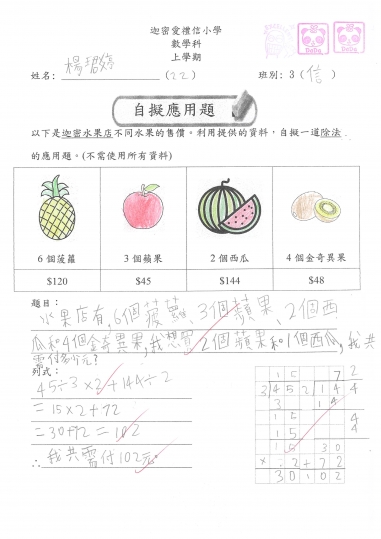 迦密愛禮信小學
數學科
上學期
姓名：楊珺婷（22） 班別：3（信）
自擬應用題
以下是迦密水果店不同水果的售價。利用提供的資料，自擬一道除法
的應用題。(不需使用所有資料)
6 個菠蘿 3 個蘋果 2 個西瓜 4 個金奇異果
$120 $45 $144 $48
題目：
水果店有,6個菠蘿、3個蘋果、2個西
瓜和4個金奇異果,我想買2個蘋果和1個西瓜,我共
需付多少元?
列式：
45÷3×2+144÷2
=15×2+72
=30+72=102
∴我共需付102元。
1 5 7 2
3 4 5 2 1 4 4
3 1 4
1 5 4
1 5 4
1 5 3 0
× 2 + 7 2
3 0 1 0 2